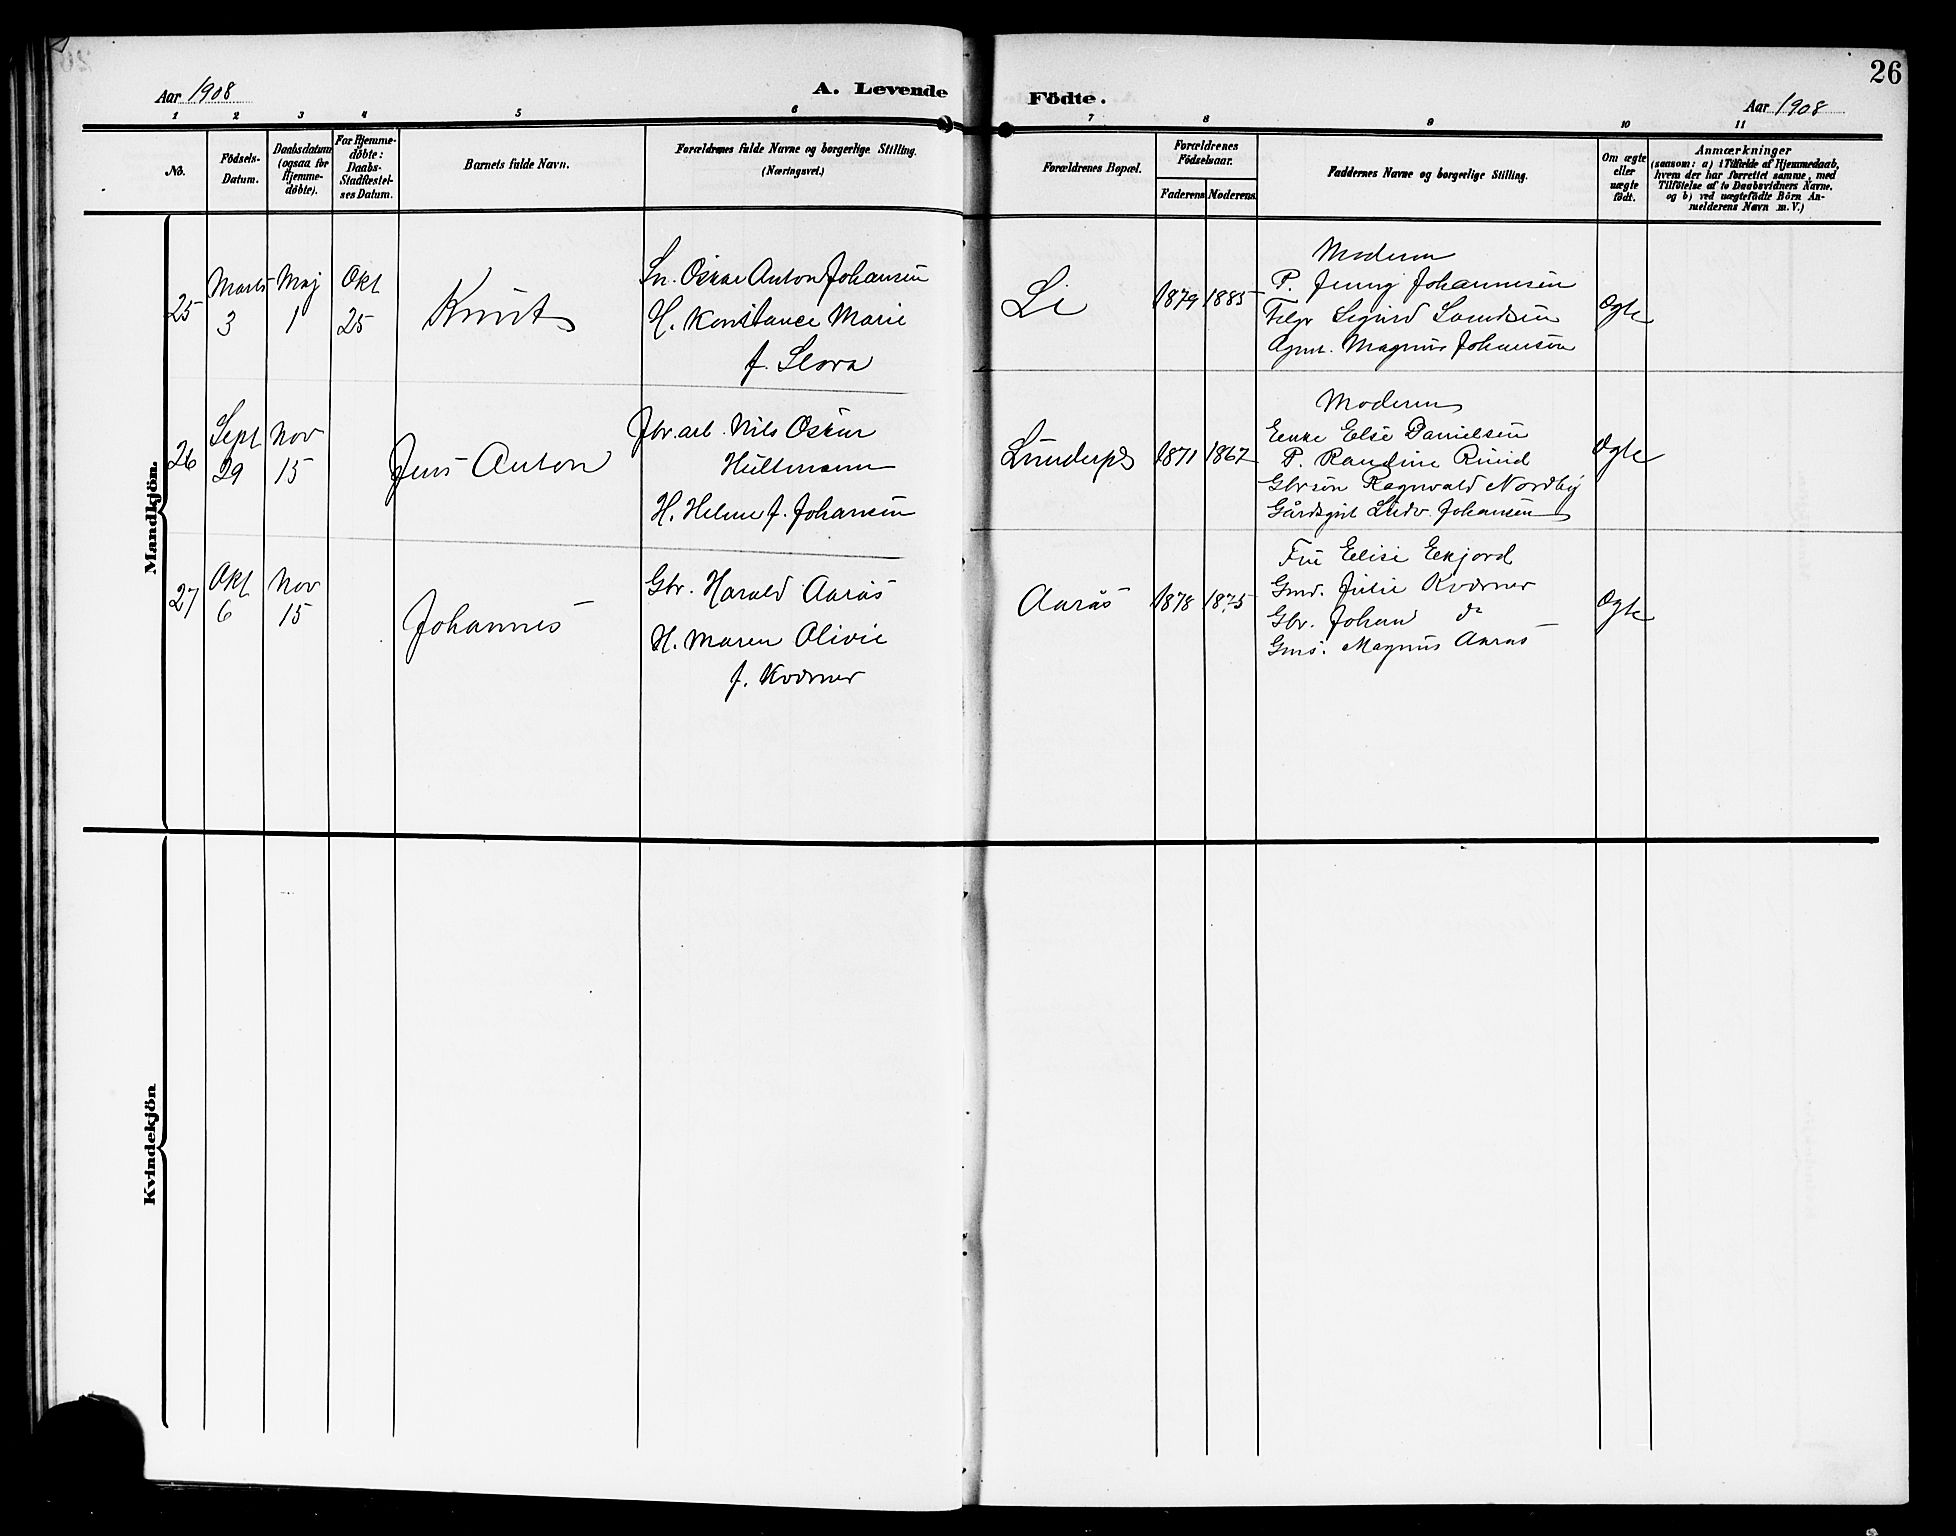 26
Aar 1908
A. Levende
Födte.
Aar 1908
1 2 3 4 5 6 7 8 9 10 11
No.
Födsels-Datum.
Daabsdatum (ogsaa for Hjemme-döbte).
For Hjemme-döbte: Daabs-Stadfæstel-ses Datum.
Barnets fulde Navn.
Forældrenes fulde Navne og borgerlige Stilling.
(Næringsvei.)
Forældrenes Bopæl.
Forældrenes Födselsaar.
Faderens Moderens
Faddernes Navne og borgerlige Stilling.
Om ægte eller uægte födt.
Anmærkninger
(saasom: a) i Tilfælde af Hjemmedaab, hvem der har forrettet samme, med Tilföielse af to Daabsvidners Navne. og b) ved uægtefödte Börn An-melderens Navn m. V.)
Mandkjön.
25
Marts 3
Maj 1
Okt 25
Knut
Sn. Oskar Anton Johansen
H. Konstance Marie
f. Slora
Li
1879 1885
Moderen
P. Jenny Johannesen
Sigurd
Magnus Johansen
Ægte
26
Sept 29
Nov 15
Jens Anton
Jbr.arb. Nils Oskar
Hultmann
H. Helene f. Johansen
Lunderps
1871 1867
Moderen
Enke Else Danielsen
P. Randine Ruud
Gbrsøn Ragnvald Nordby
Gårdsgut Ludv. Johansen
Ægte
27
Okt 6
Nov 15
Johannes
Gbr. Harald Aarås
H. Maren Olivie
f. Kværner
Aarås
1878 1875
Fru Elise Ekjord
Gmd. Julie Kværner
Gbr. Johan do
Gms. Magnus Aarås
Ægte
Kvindekjön